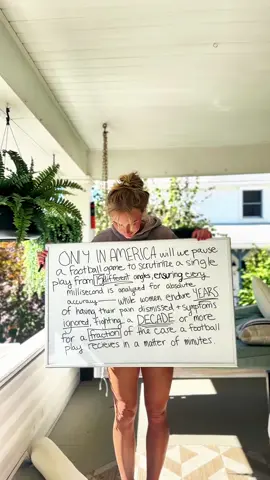 ONLY IN AMERICA will we pause
a football game to scrutinize a single
play from different angles, ensuring every
millisecond is analyzed for absolute
accuracy — while women endure YEARS
of having their pain dismissed + symptoms
ignored, fighting a DECADE or more
for a fraction of the care a football
play recieves in a matter of minutes.